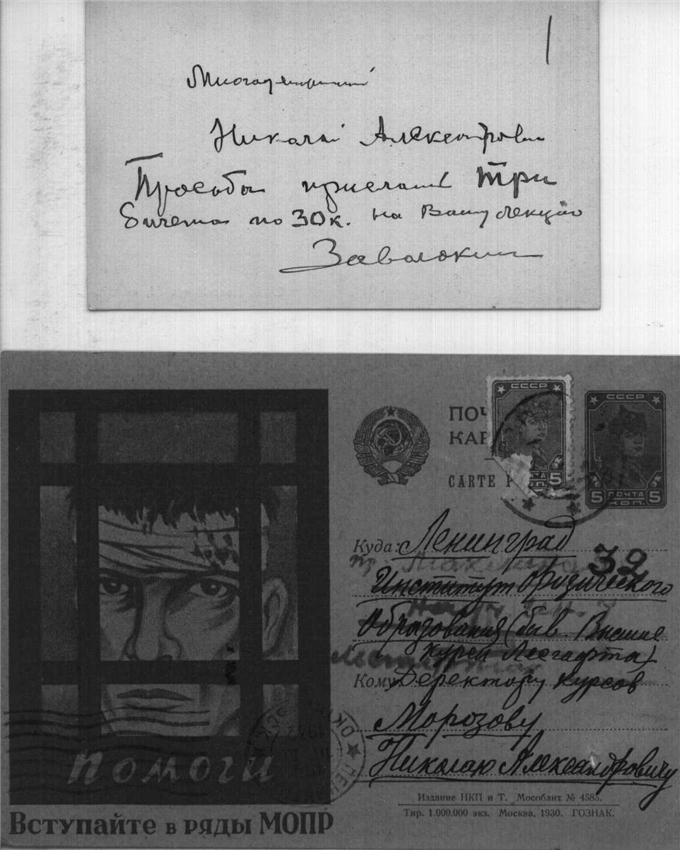 Многоуважаемый
Николай Александрович
Просьба прислать три
билета по 30 к. на Вашу лекцію
Заволокин
ПОЧ
КАР
CARTE P
СССР
5
СССР
5 ПОЧТА КОП. 5
Куда: Ленинград
39
Институт Физического
Образования (быв. Высшие
курсы Лесгафта)
Кому: Деректору курсов
Морозову
Николаю Александровичу
Помоги
Вступайте в ряды МОПР
Издание НКП и Т. Мособлит № 4585.
Тир. 1.000.000 экз. Москва, 1930. ГОЗНАК.